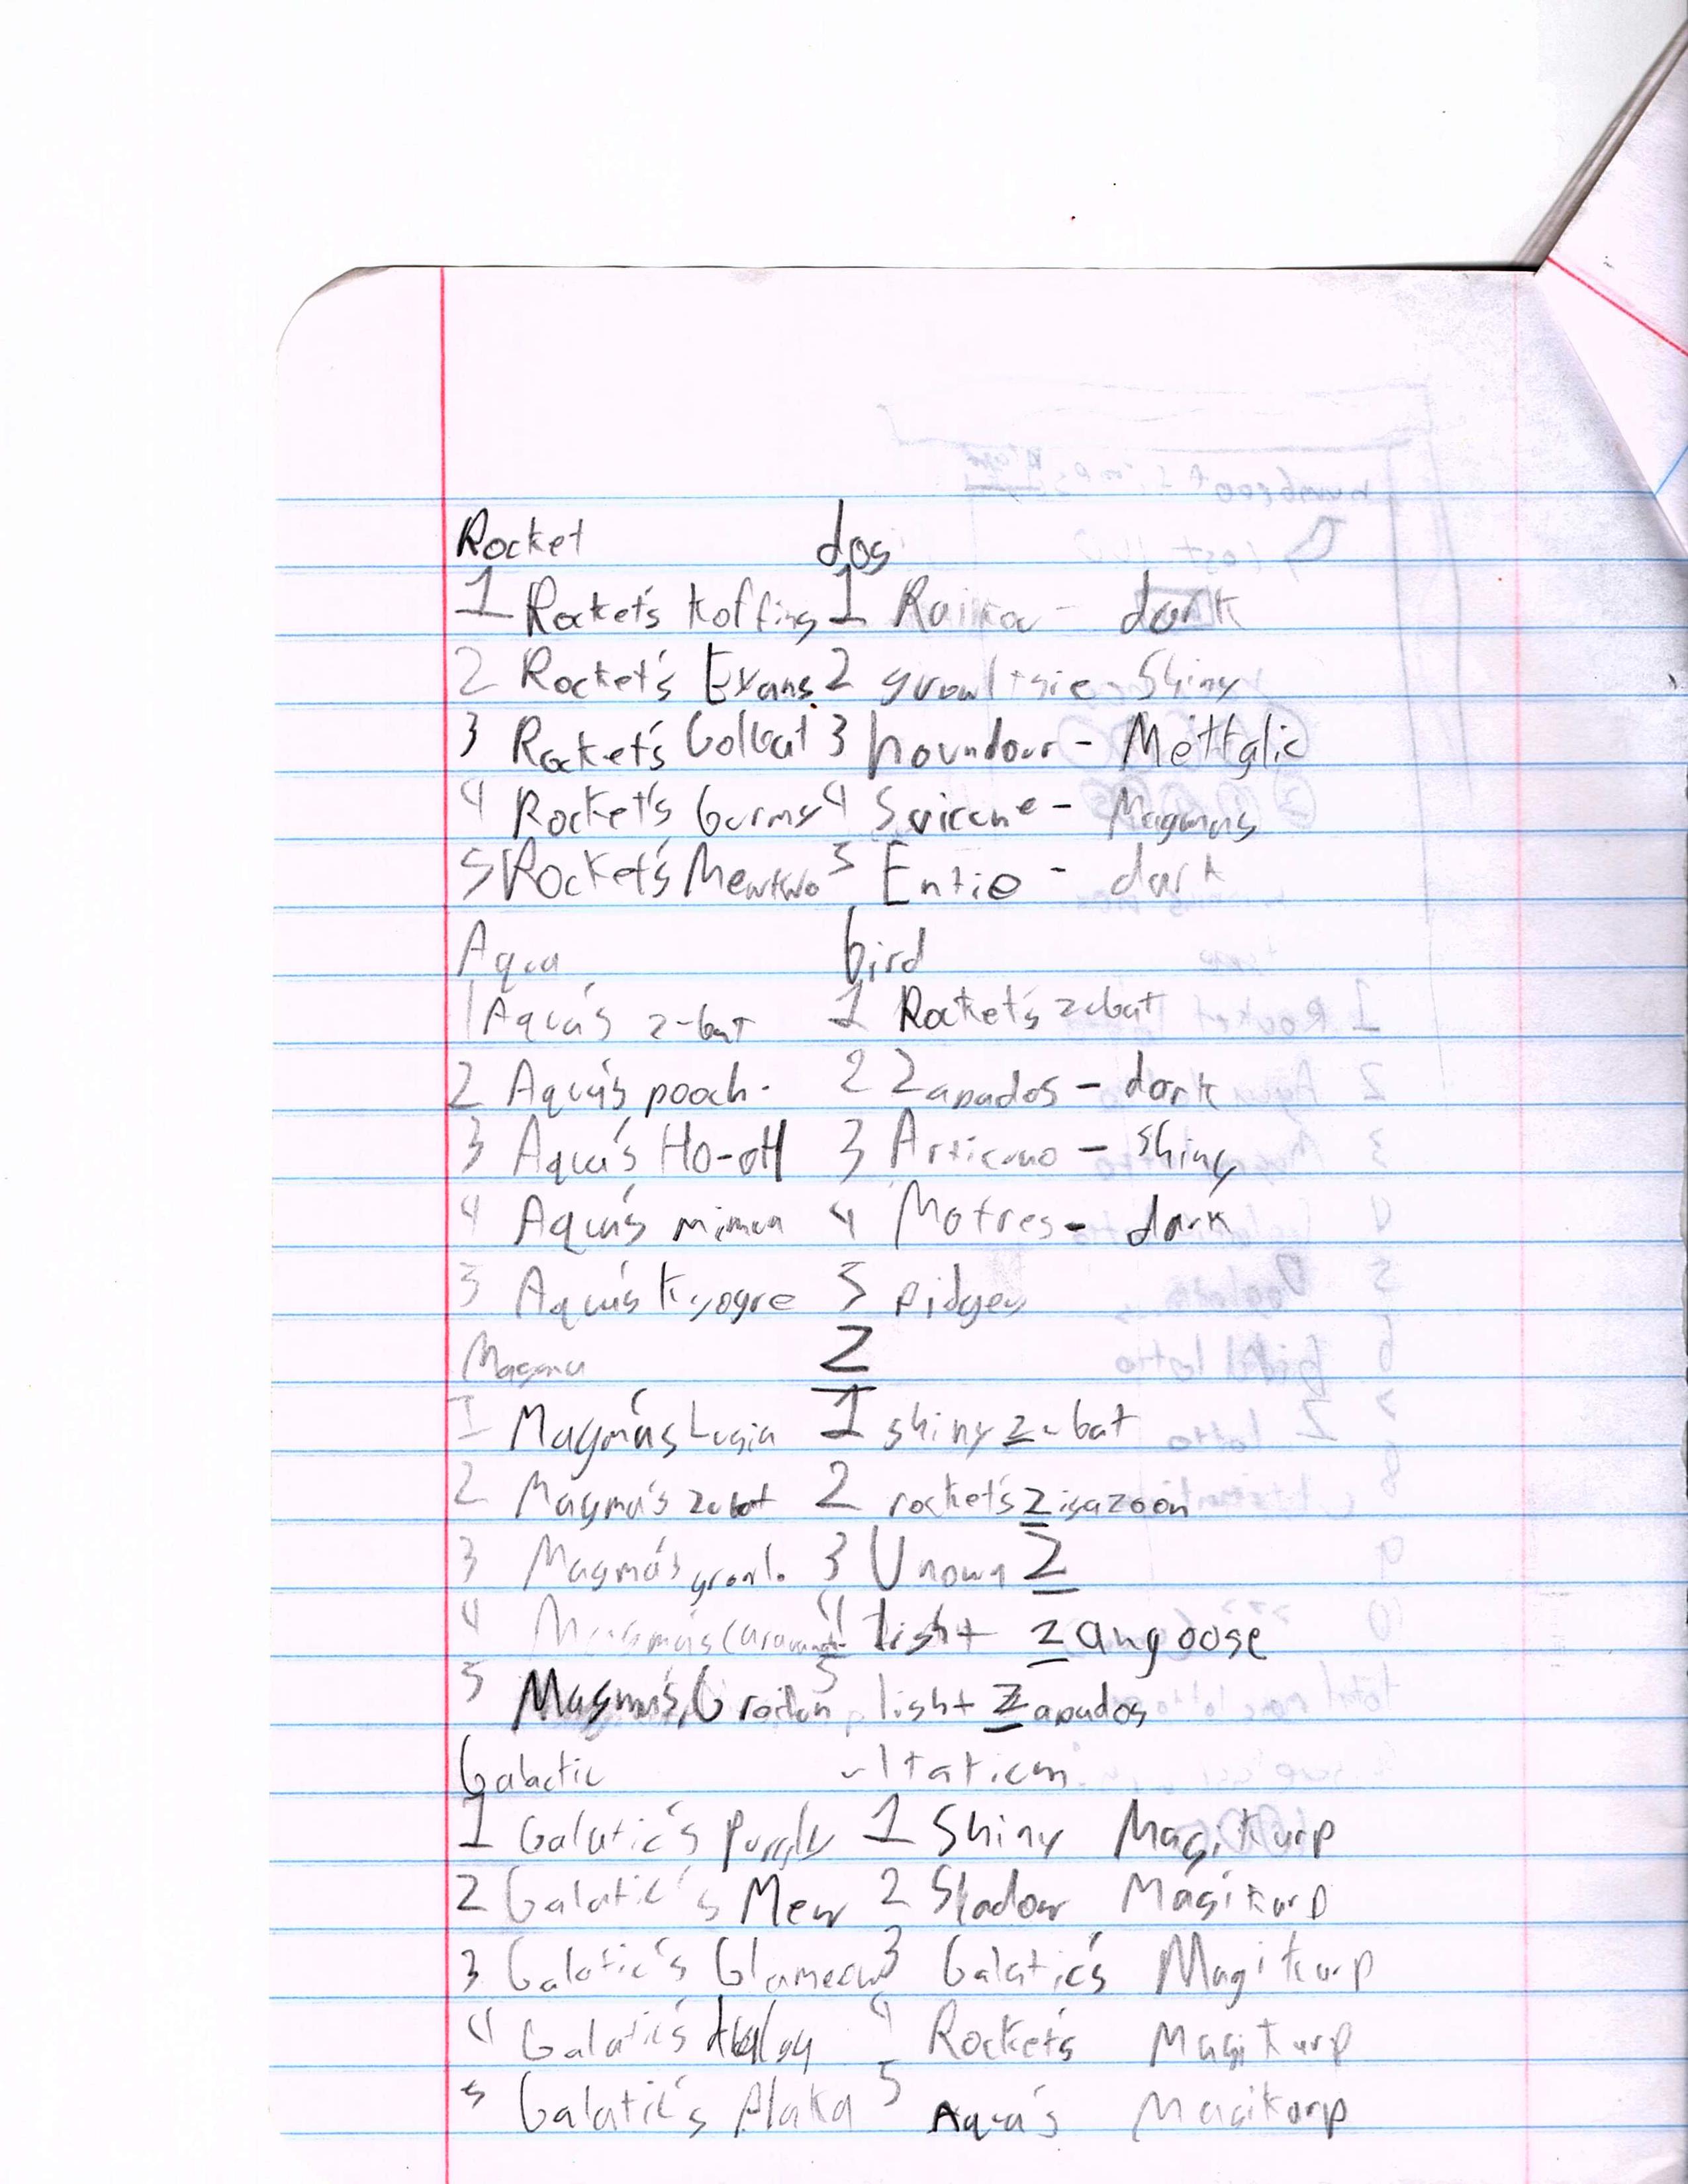 Rocket dos
1 Rocket's Koffing 1 Raikou - dark
2 Rocket's Exans 2 growltsie - Shiny
3 Rocket's Golbat 3 houndour - Mettalic
4 Rocket's Gurmy 4 Suicune - Magmas
5 Rocket's Mewtwo 5 Entie - dark
Aqua bird
1 Aqua's z-bat 1 Rocket's zubat
2 Aqua's pooch. 2 Zapados - dark
3 Aqua's HO-OH 3 Articuno - Shiny
4 Aqua's 4 Motres - dark
5 Aqua's Kyogre 5 pidgey
Magma Z
1 Magma's Lugia 1 shiny zubat
2 Magma's zubat 2 rocket's zigazoon
3 Magma's growl. 3 Unown Z
4 Magma's 4 light zangoose
5 Magma's Groudon 5 light Zapados
Galactic ultaticm
1 Galatic's Purgly 1 Shiny Magikarp
2 Galatic's Mew 2 Shadow Magikarp
3 Galatic's Glameow 3 Galatic's Magikarp
4 Galatic's 4 Rocket's Magikarp
5 Galatic's Plaka 5 Aqua's Magikarp